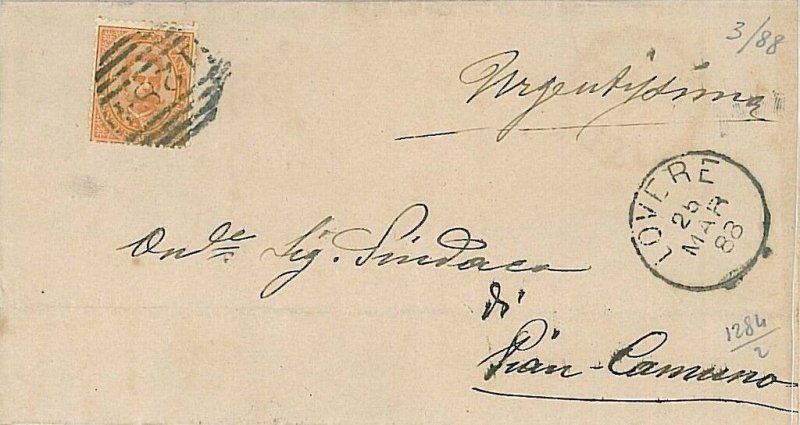 3/88
Urgentissima
LOVERE
26
MAR
88
On.le Sig. Sindaco
di
Pian-Camuno
1284/2